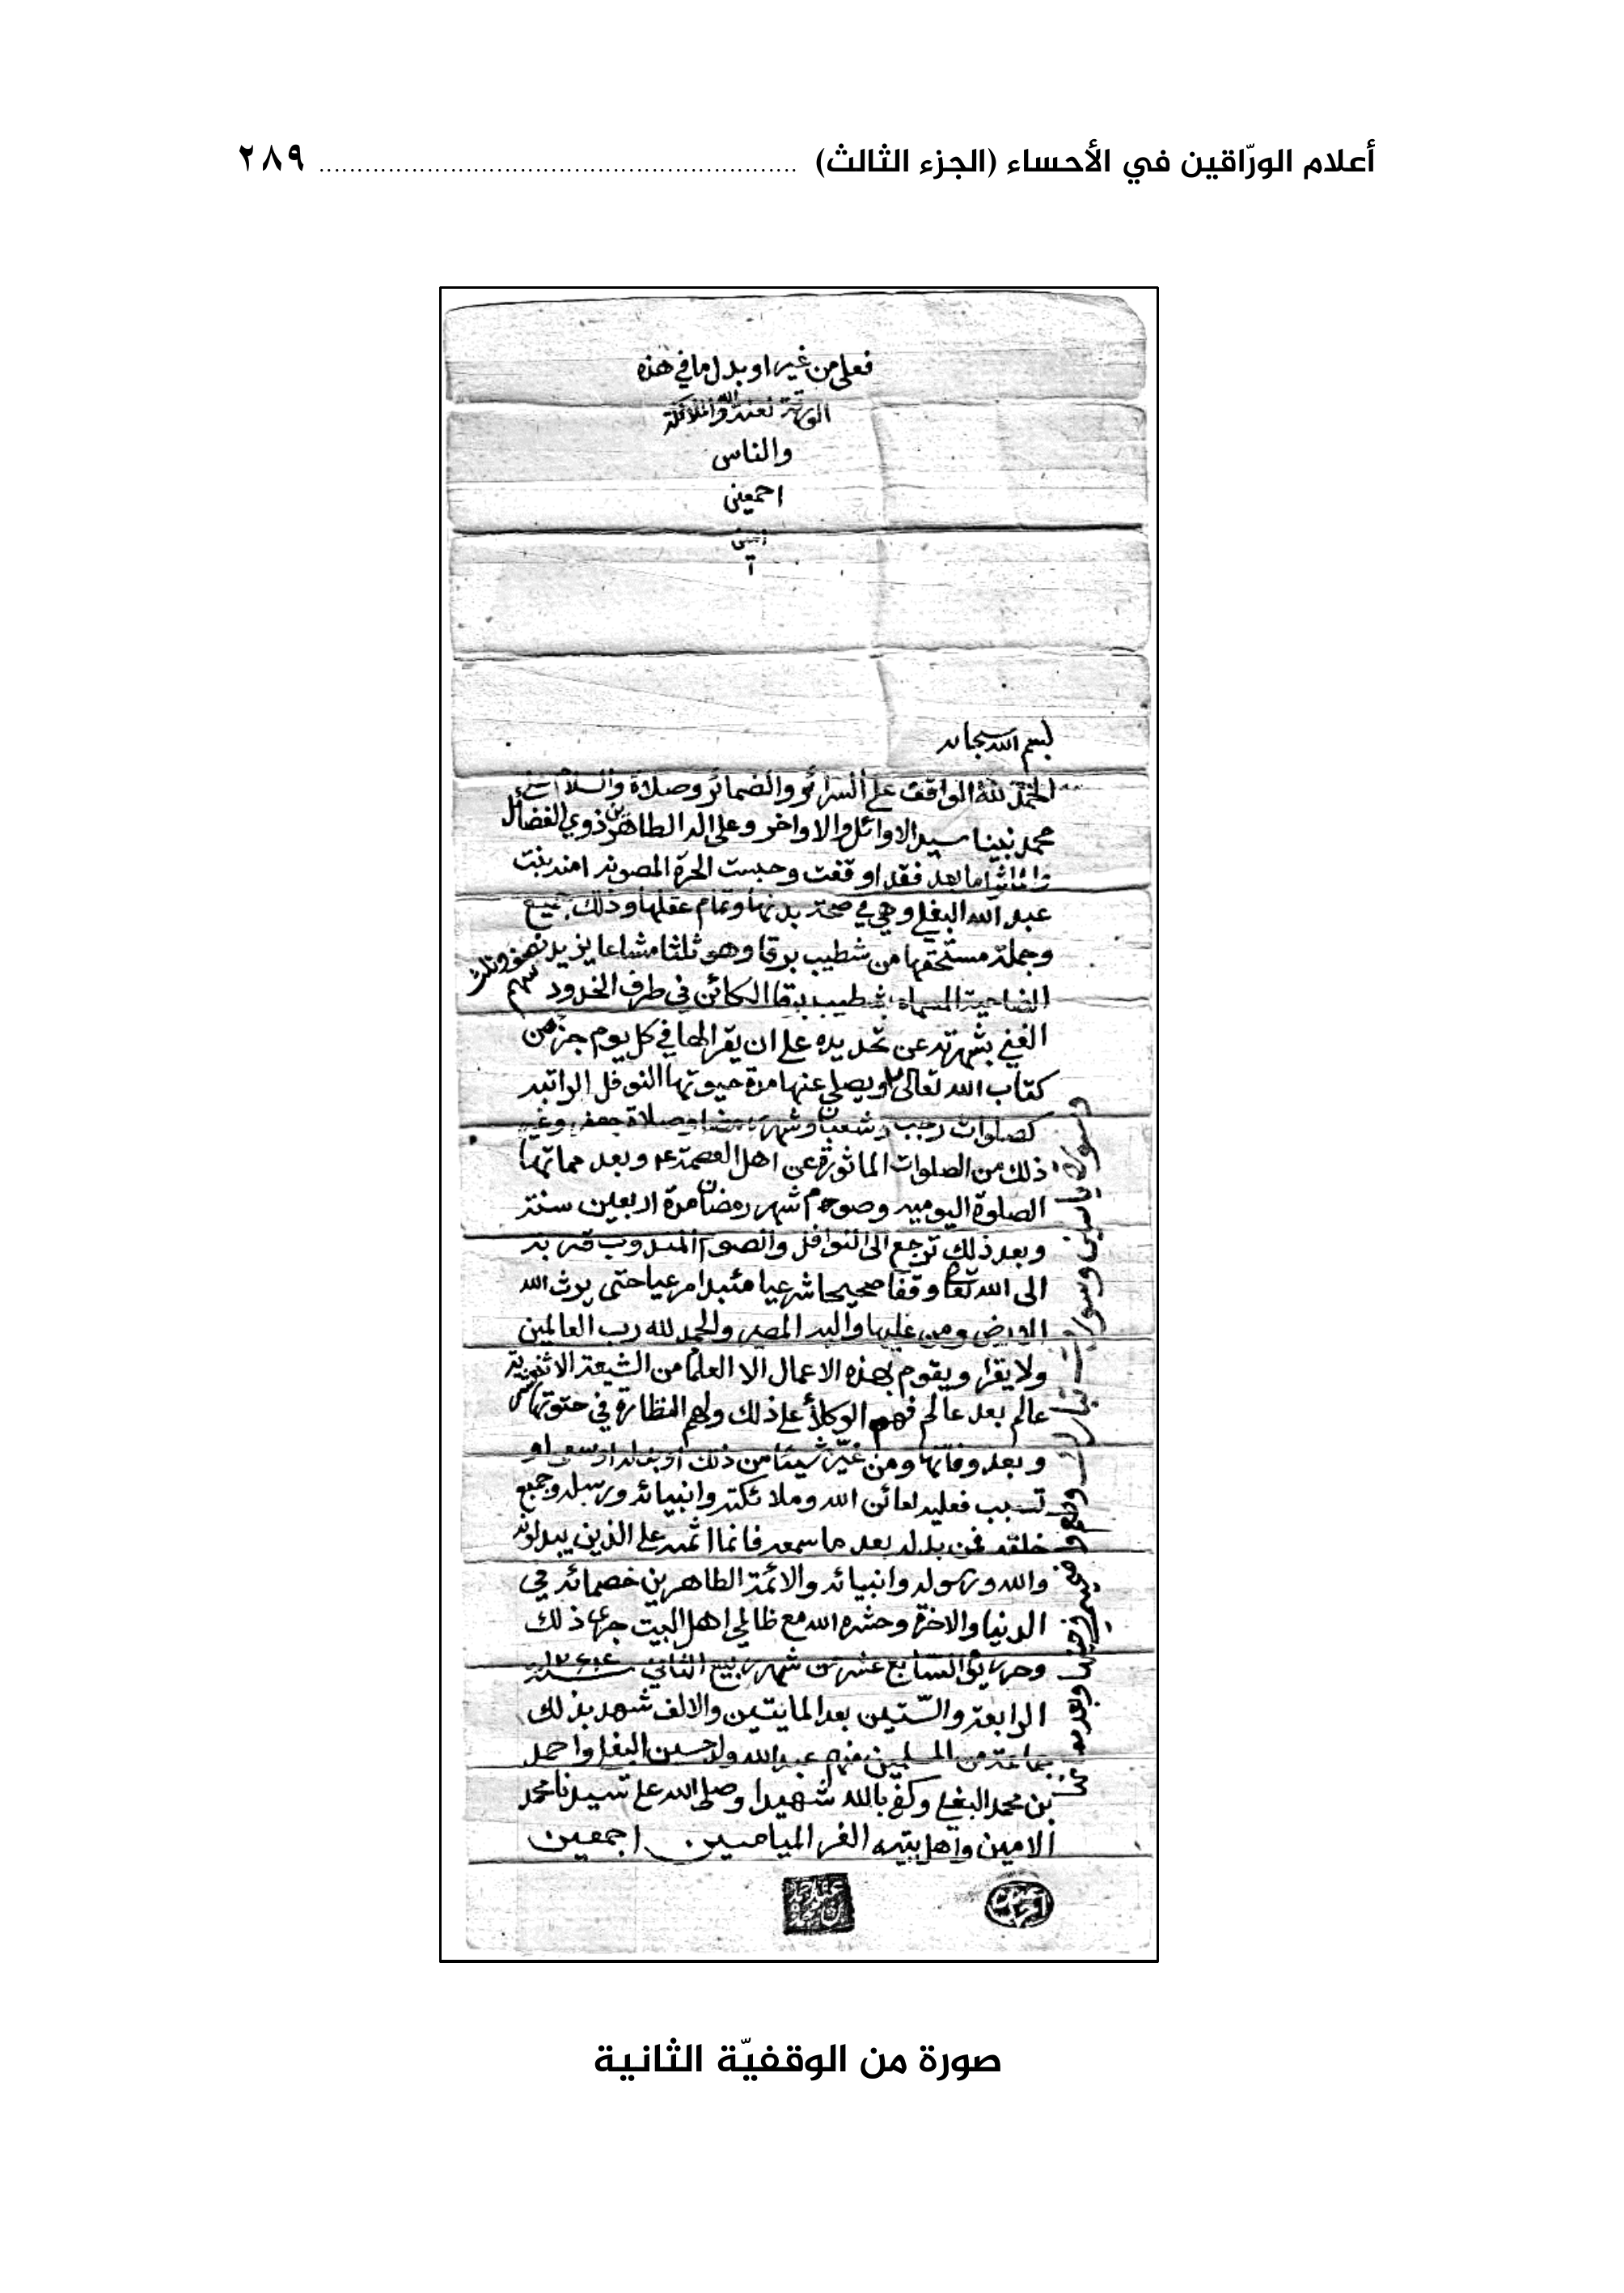 أعلام الورّاقين في الأحساء (الجزء الثالث) ........................................ ٢٨٩
فعلى من غير او بدل ما في هذه
الورقة لعنة الله والملائكة
والناس
اجمعين
انتهى
بسم الله سبحانه
الحمد لله الواقف على السرائر والضمائر وصلاة والسلام على
محمد نبينا سيد الاوائل والاواخر وعلى اله الطاهرين ذوي الفضائل
اما بعد فقد اوقفت وحبست الحرة المصونه امنه بنت
عبد الله البغلي وهي في صحة بدنها وتمام عقلها وذلك جميع
وجملة مستحقها من شطيب بوقا وهو ثلثا مشاعا يزيد نصف وثلث
سهم
الضاحية المسماه بشطيب بوقا الكائن في طرف الخدود
الغني بشهرته عن تحديده على ان يقرا لها في كل يوم جزء من
كتاب الله تعالى ويصلي عنها مدة حيوتها النوفل الراتبه
كصلوات رجب وشعبان وشهر رمضان وصلاة جعفر وغير
ذلك من الصلوات الماثورة عن اهل العصمة ع وبعد مماتها
الصلوة اليوميه وصوم شهر رمضان مدة اربعين سنة
وبعد ذلك ترجع الى النوافل والصوم المندوب قربة
الى الله تعالى وقفا صحيحا شرعيا مئبدا مرعيا حتى يرث الله
الارض ومن عليها واليه المصير والحمد لله رب العالمين
ولا يقرا ويقوم بهذه الاعمال الا العلما من الشيعة الاثني عشرية
عالم بعد عالم فهم الوكلاء على ذلك ولهم النظارة في حيوتها
وبعد وفاتها ومن غير شيئا من ذلك او بدله او سعى او
تسبب فعليه لعائن الله وملائكته وانبيائه ورسله وجميع
خلقه فمن بدله بعد ما سمعه فانما اثمه على الذين يبدلونه
والله ورسوله وانبيائه والائمة الطاهرين خصمائه في
الدنيا والاخرة وحشره الله مع ظالمي اهل البيت جرى ذلك
وحرر في السابع عشر من شهر ربيع الثاني سنة ١٢٦٤
الرابعة والستين بعد المايتين والالف شهد بذلك
جماعة من المسلمين منهم عبد الله ولد حسين البغلي واحمد
بن محمد البغلي وكفى بالله شهيدا وصلى الله على سيدنا محمد
الامين واهل بيته الغر الميامين اجمعين
صورة من الوقفيّة الثانية